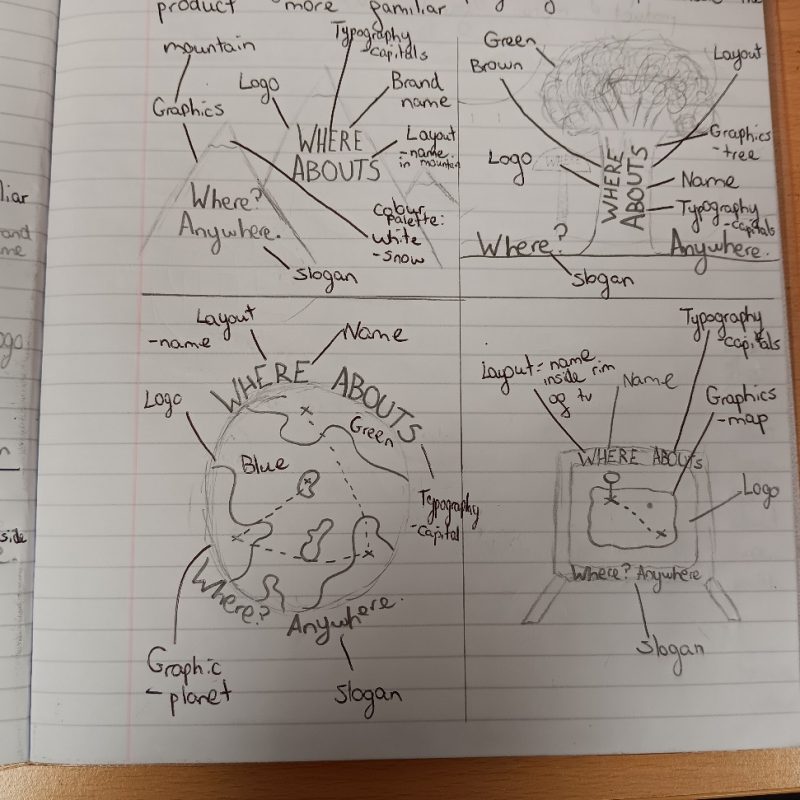 product more familiar
mountain
Typography
-capitals
Logo
Brand
name
Graphics
WHERE
ABOUTS
Layout
-name
in mountain
Where?
Anywhere.
Colour
palette:
white
-snow
slogan
Green
Brown
Layout
Graphics
-tree
Logo
WHERE
ABOUTS
Name
Typography
-capitals
Where?
Anywhere.
slogan
Layout
-name
Name
WHERE ABOUTS
Logo
Green
Blue
Typography
-capital
Where?
Anywhere.
Graphic
-planet
slogan
Typography
-capitals
Layout - name
inside rim
of tv
Name
Graphics
-map
WHERE ABOUTS
Logo
Where? Anywhere
slogan